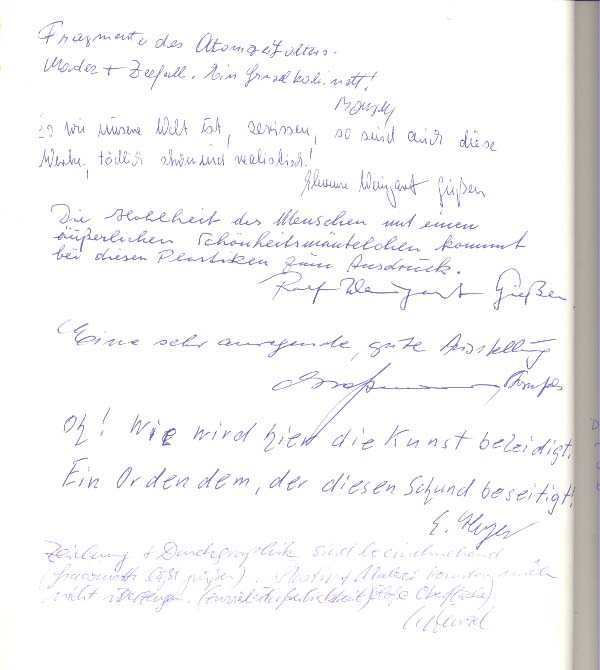 Fragmente des Atomzeitalters.
Moder + Zerfall. Ein
So wie unsere Welt ist, zerrissen, so sind auch diese
Werke, tödlich schön und realistisch!
Weingart Gießen
Die Hohlheit des Menschen mit einen
äußerlichen Schönheitsmäntelchen kommt
bei diesen Plastiken zum Ausdruck.
Ralf Weingart Gießen
Eine sehr anregende, gute Ausstellung
Oh! Wie wird hier die Kunst beleidigt.
Ein Orden dem, der diesen Schund beseitigt!
E. Heyer
Zeichnung + Druckgraphik sind beeindruckend
(Giacometti läßt grüßen). Plaster + Malerei konnten mich
nicht überzeugen.